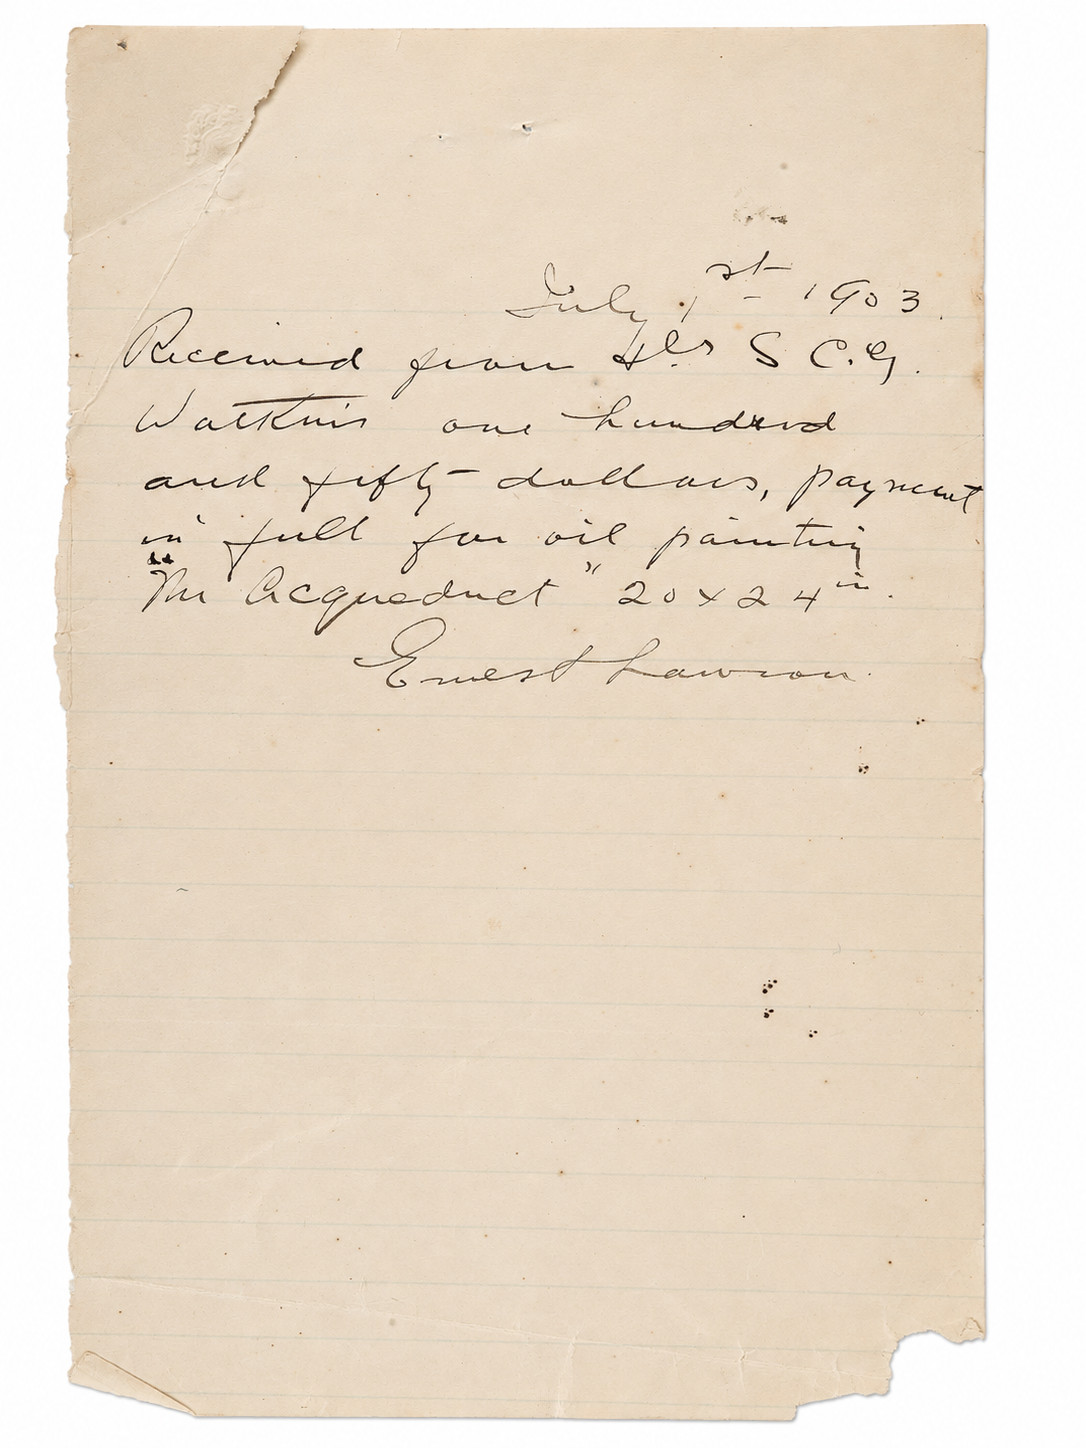 July 1st 1903.
Received from S C. G.
Watkins one hundred
and fifty dollars, payment
in full for oil painting
"The Acqueduct" 20 x 24 in.
Ernest Lawson.